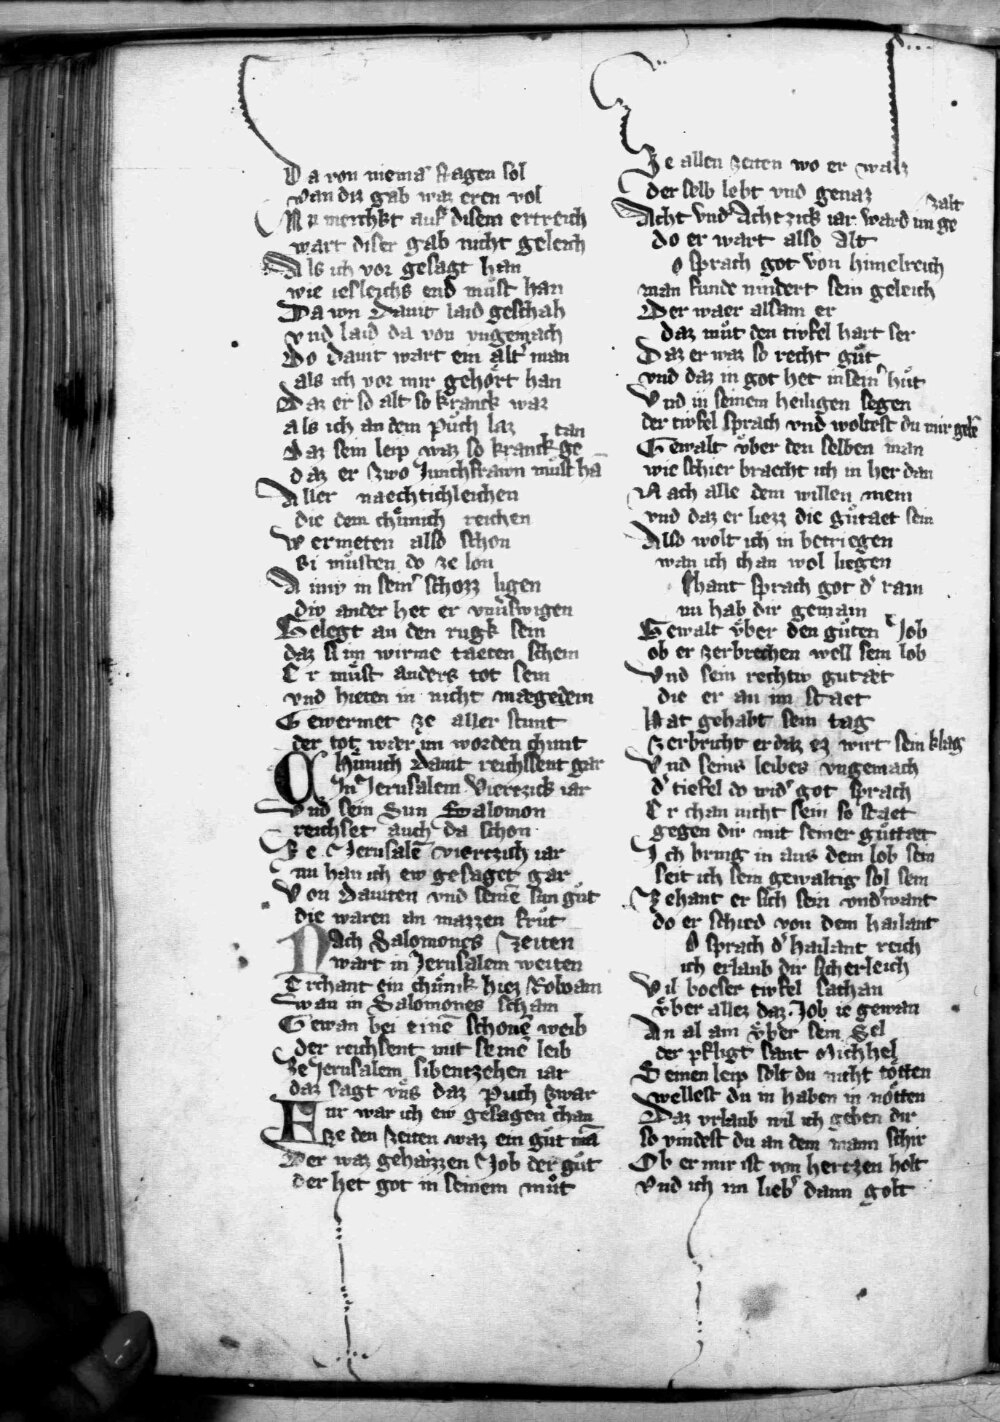 Da von niema͛ fragen sol
wan diz gab waz eren vol
Nu merchkt auf disem ertreich
wart diser gab nicht geleich
Als ich vor gesagt han
wie iesleichs end muͤst han
Da von Dauit laid geschah
vnd laid da von vngemach
Do dauit wart ein alt͛ man
als ich vor mir gehoͤrt han
Daz er so alt so kranck waz
als ich an dem puͤch laz
Daz sein leip waz so kranck ge tan
daz er zwo Junchfrawn muͤst ha
Aller naechtichleichen
die dem chuͤnich reichen
Wermeten also schon
Si muͤsten do ze lon
Ainiv in sein͛ schozz ligen
Div ander het er vnu͛swigen
Gelegt an den rugk sein
daz si im wirme taeten schein
Er muͤst anders tot sein
vnd hieten in nicht maegedein
Gewermet ze aller stunt
der tot waer im worden chunt
Chuͤnich Dauit reichssent gar
In Jerusalem Viertzick iar
Vnd sein Sun Salomon
reichset auch da schon
Ze Jerusalē viertzich iar
nu han ich ew gesaget gar
Von dauiten vnd seinē sun guͤt
die waren an mazzen fruͤt
Nach Salomones zeiten
wart in Jerusalem weiten
Erchant ein chuͤnik hiez Roboam
wan in Salomones scham
Gewan bei einē schonē weib
der reichsent mit seinē leib
Ze Jerusalem sibentzehen iar
daz sagt vns daz puch zwar
Fur war ich ew gesagen chan
ze den zeiten waz ein guͤt mā
Der waz gehaizzen Job der guͤt
der het got in seinem muͤt
Ze allen zeiten wo er waz
der selb lebt vnd genaz
Acht vnd Achtzick iar ward im ge zalt
do er wart also alt
o sprach got von himelreich
man funde nindert sein geleich
Der waer alsam er
daz muͤt den tivfel hart ser
Daz er waz so recht guͤt
vnd daz in got het in sein͛ huͤt
Vnd in seinem heiligen segen
der tivfel sprach vnd woltest du mir gebē
Gewalt vͤber den selben man
wie schier braecht ich in her dan
Nach alle dem willen mein
vnd daz er liezz die guͤtaet sein
Also wolt ich in betriegen
wan ich chan wol liegen
hant sprach got d͛ rain
nu hab dir gemain
Gewalt vͤber den guͤten Job
ob er zerbrechen well sein lob
Vnd sein rechtiv gutaet
die er an im staet
Hat gehabt sein tag
zerbricht er daz ez wirt sein klag
Vnd seins leibes vngemach
d͛ tiefel do wid͛ got sprach
Er chan nicht sein so staet
gegen dir mit seiner guͤttaet
Ich bring in aus dem lob sein
seit ich sein gewaltig sol sein
Zehant er sich sein vnd͛want
do er schied von dem hailant
o sprach d͛ hailant reich
ich erlaub dir sicherleich
Vil boeser tivfel sathan
vͤber allez daz Job ie gewan
An al am vͤber sein Sel
der pfligt sant Michhel
Seinen leip solt du nicht toͤtten
wellest du in haben in noͤtten
Daz vrlaub wil ich geben dir
so vindest du an dem mann schir
Ob er mir ist von hertzen holt
Vnd ich im lieb͛ dann golt